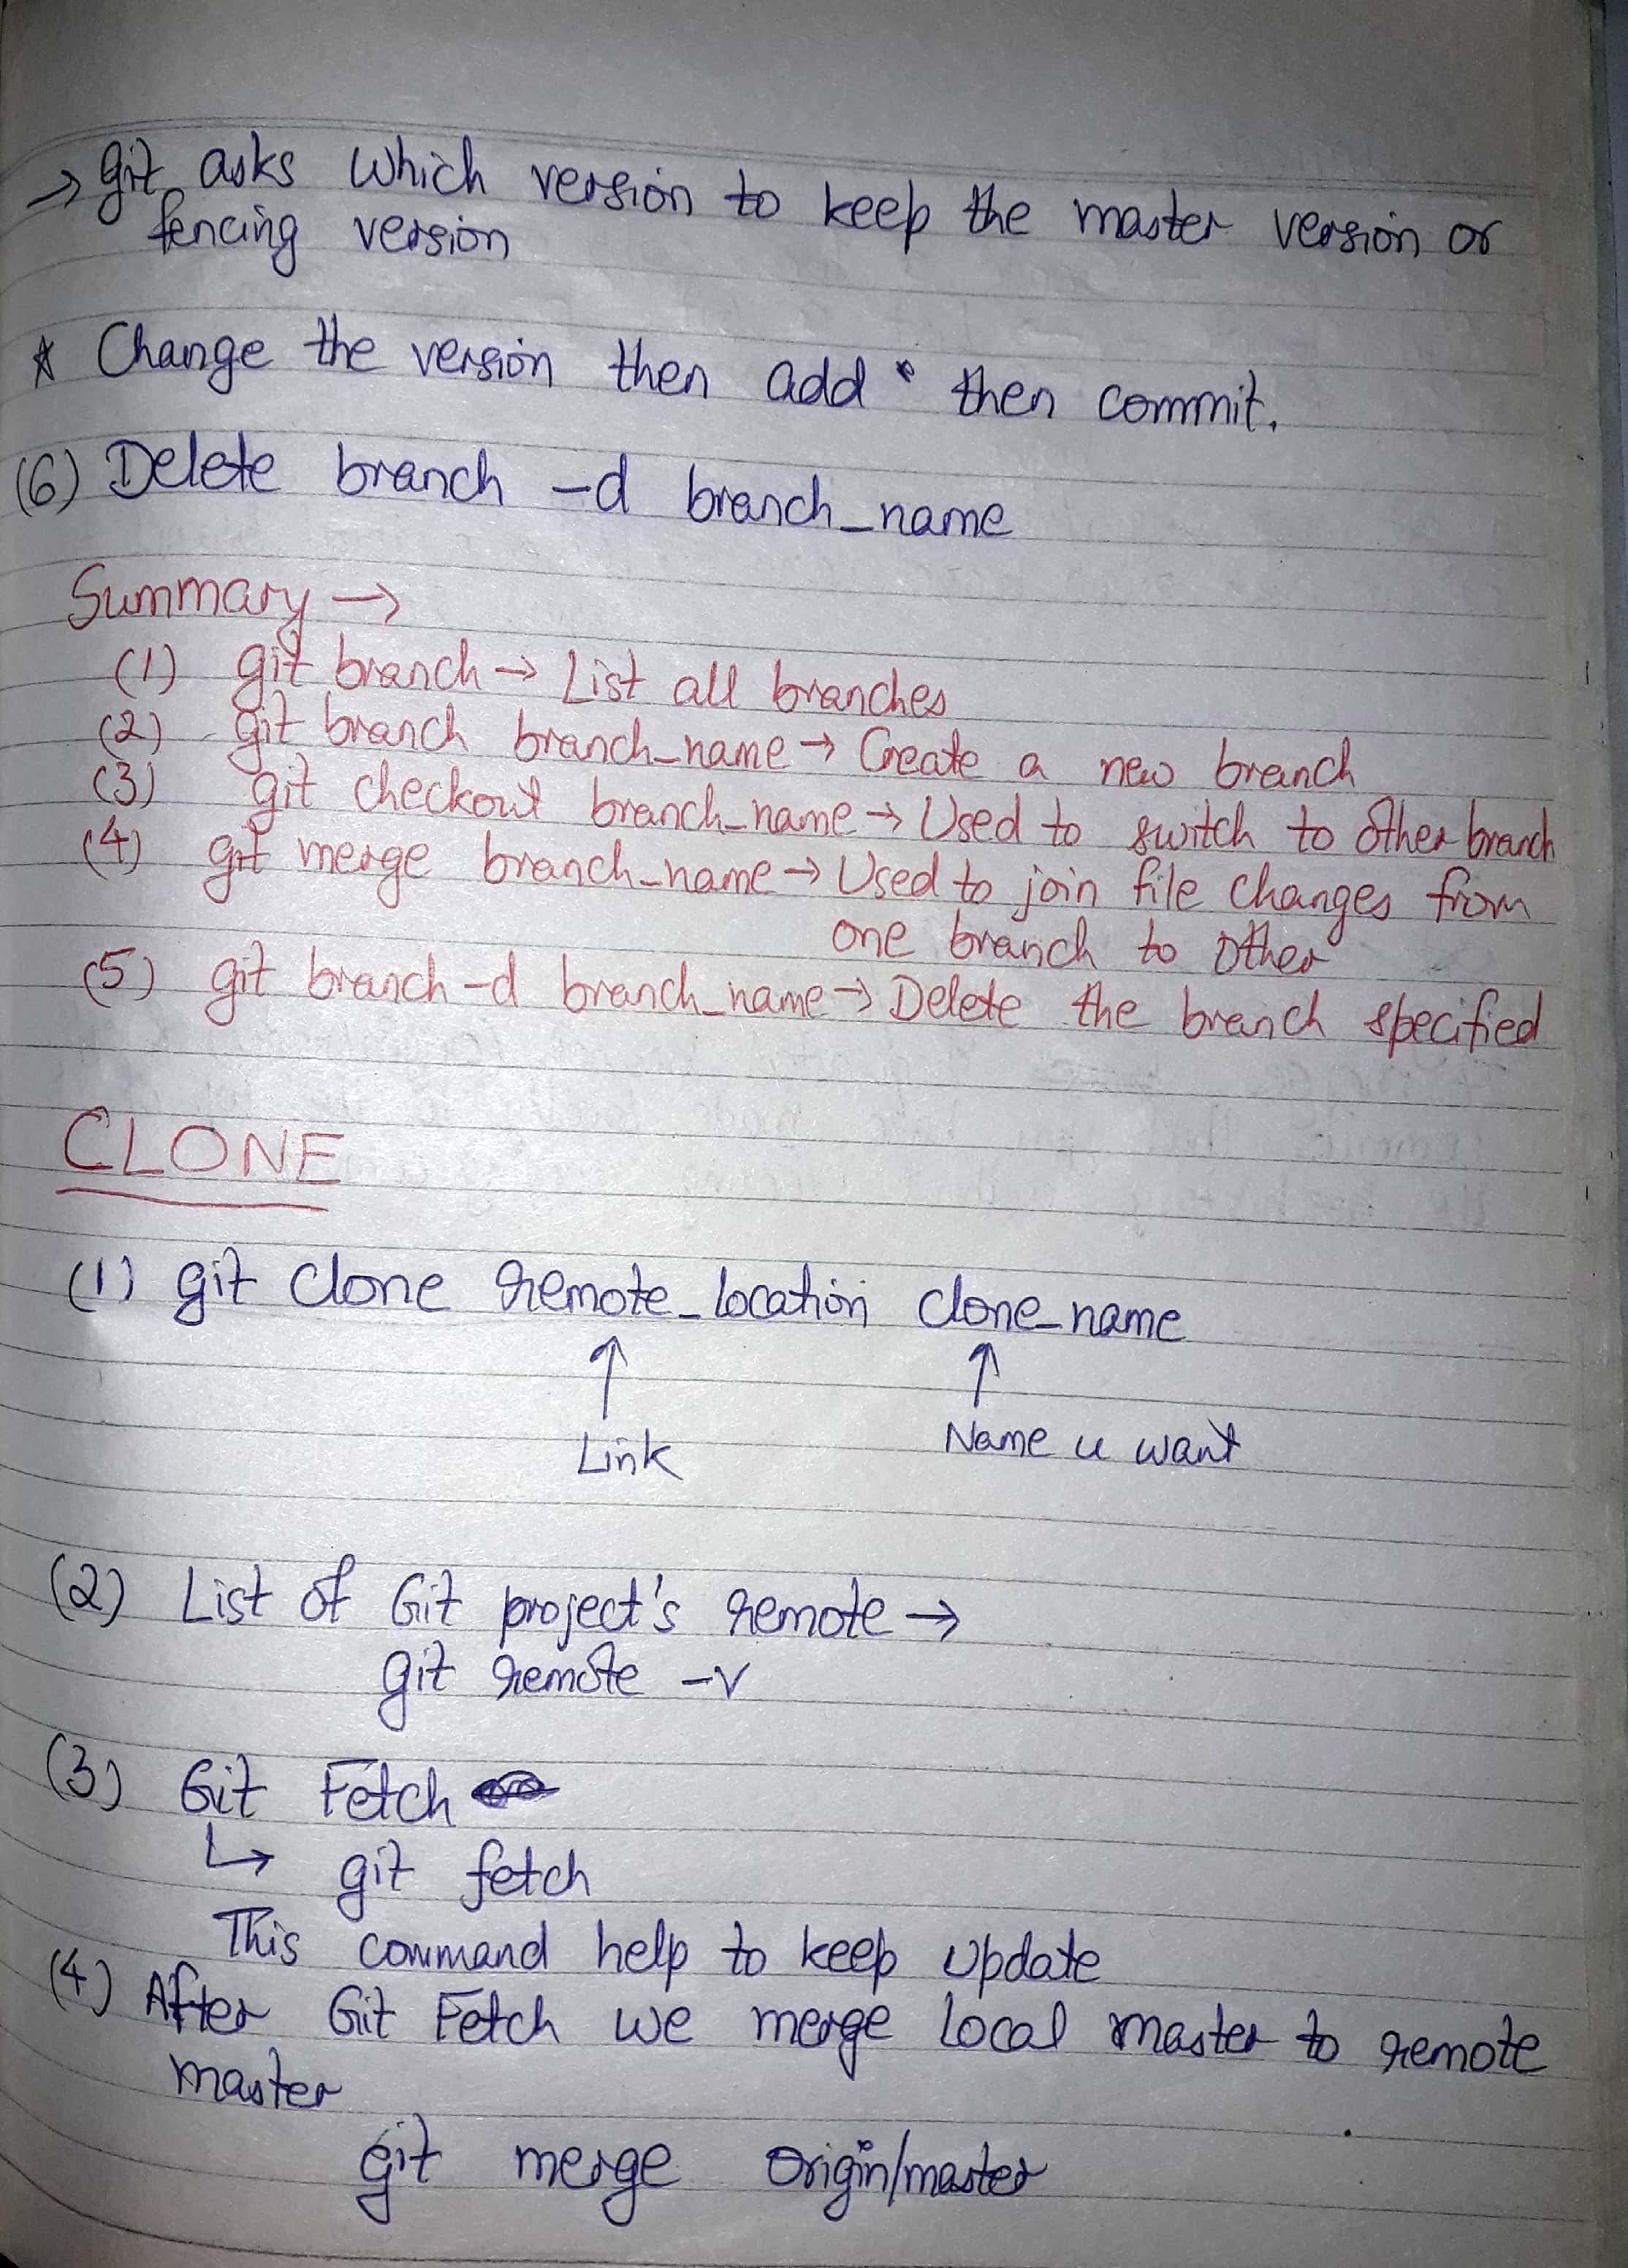 → git asks which version to keep the master version or
fencing version
* Change the version then add • then commit.
(6) Delete branch -d branch_name
Summary →
(1) git branch → List all branches
(2) git branch branch_name → Create a new branch
(3) git checkout branch_name → Used to switch to other branch
(4) git merge branch_name → Used to join file changes from
one branch to other
(5) git branch -d branch_name → Delete the branch specified
CLONE
(1) git clone remote_location clone_name
↑ ↑
Link Name u want
(2) List of Git project's remote →
git remote -v
(3) Git Fetch
↳ git fetch
This command help to keep update
(4) After Git Fetch we merge local master to remote
master
git merge origin/master